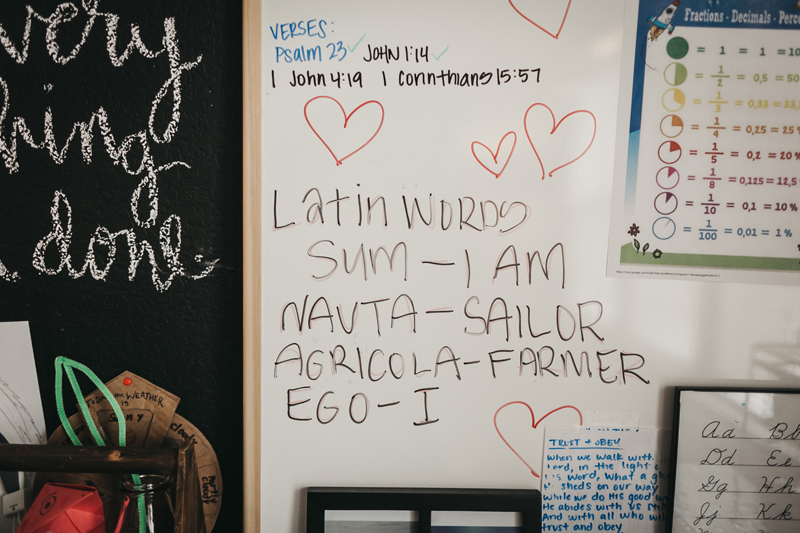 very
hing
done.
VERSES:
Psalm 23 JOHN 1:14
1 John 4:19 1 Corinthians 15:57
Latin WORDS
SUM – I AM
NAVTA – SAILOR
AGRICOLA – FARMER
EGO – I
Fractions - Decimals - Perce
= 1 = 1 = 10
= 1/2 = 0,5 = 50
= 1/3 = 0,33 = 33,
= 1/4 = 0,25 = 25
= 1/5 = 0,2 = 20 %
= 1/8 = 0,125 = 12,5
= 1/10 = 0,1 = 10 %
= 1/100 = 0,01 = 1 %
TODAY'S WEATHER
IS
SUNNY
cloudy
partly cloudy
TRUST & OBEY
When we walk with
Lord, in the light o
His word, what a glo
sheds on our way
while we do His good w
He abides with us sti
And with all who wil
trust and obey
Aa Bb
Dd Ee
Gg Hh
Jj Kk